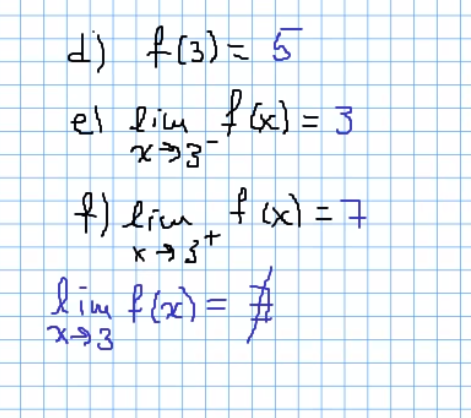 d) f(3) = 5
e) lim x→3⁻ f(x) = 3
f) lim x→3⁺ f(x) = 7
lim x→3 f(x) = ∄